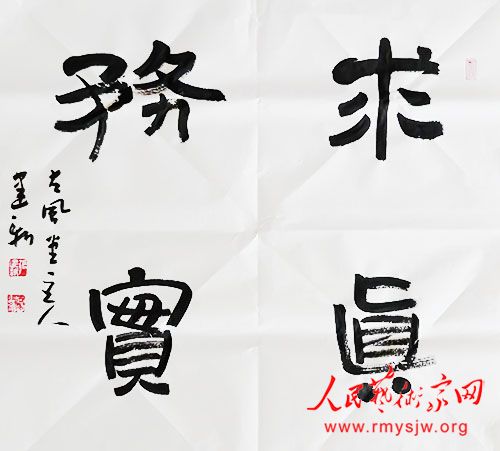 求真
務實
古風堂主人
建新
人民藝術家网
www.rmysjw.org